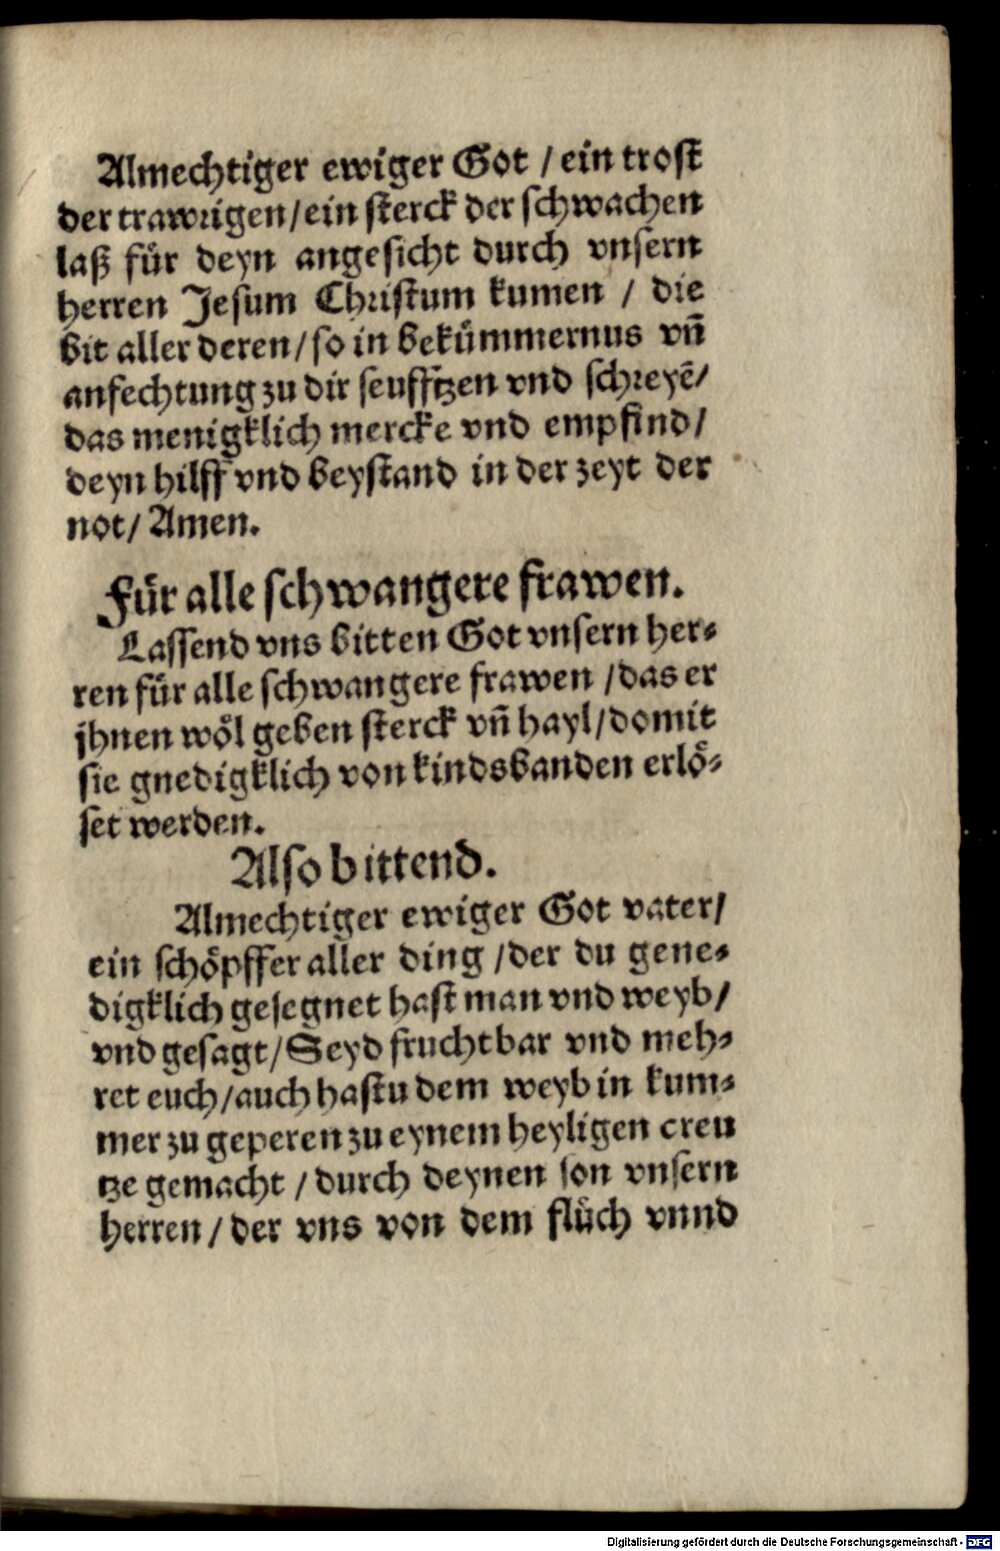 Almechtiger ewiger Got / ein trost
der trawrigen / ein sterck der schwachen
laß für deyn angesicht durch vnsern
herren Jesum Christum kumen / die
bit aller deren / so in bekümmernus vñ
anfechtung zu dir seufftzen vnd schreyē/
das menigklich mercke vnd empfind /
deyn hilff vnd beystand in der zeyt der
not / Amen.
Für alle schwangere frawen.
Lassend vns bitten Got vnsern her⸗
ren für alle schwangere frawen / das er
jhnen wöl geben sterck vñ hayl / domit
sie gnedigklich von kindsbanden erlö⸗
set werden.
Also bittend.
Almechtiger ewiger Got vater /
ein schöpffer aller ding / der du gene⸗
digklich gesegnet hast man vnd weyb /
vnd gesagt / Seyd fruchtbar vnd meh⸗
ret euch / auch hastu dem weyb in kum⸗
mer zu geperen zu eynem heyligen creu
tze gemacht / durch deynen son vnsern
herren / der vns von dem flůch vnnd
Digitalisierung gefördert durch die Deutsche Forschungsgemeinschaft - DFG